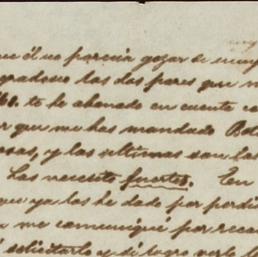 que él no parecia gozar de muy
gradores las dos pares que
te he abonado en cuenta co
que me has mandado
osas, y las ultimas son las
Las necesito fuertes. En
que ya las he dado por perdi
me comuniqué por reca
solicitarlo y si logro verlo